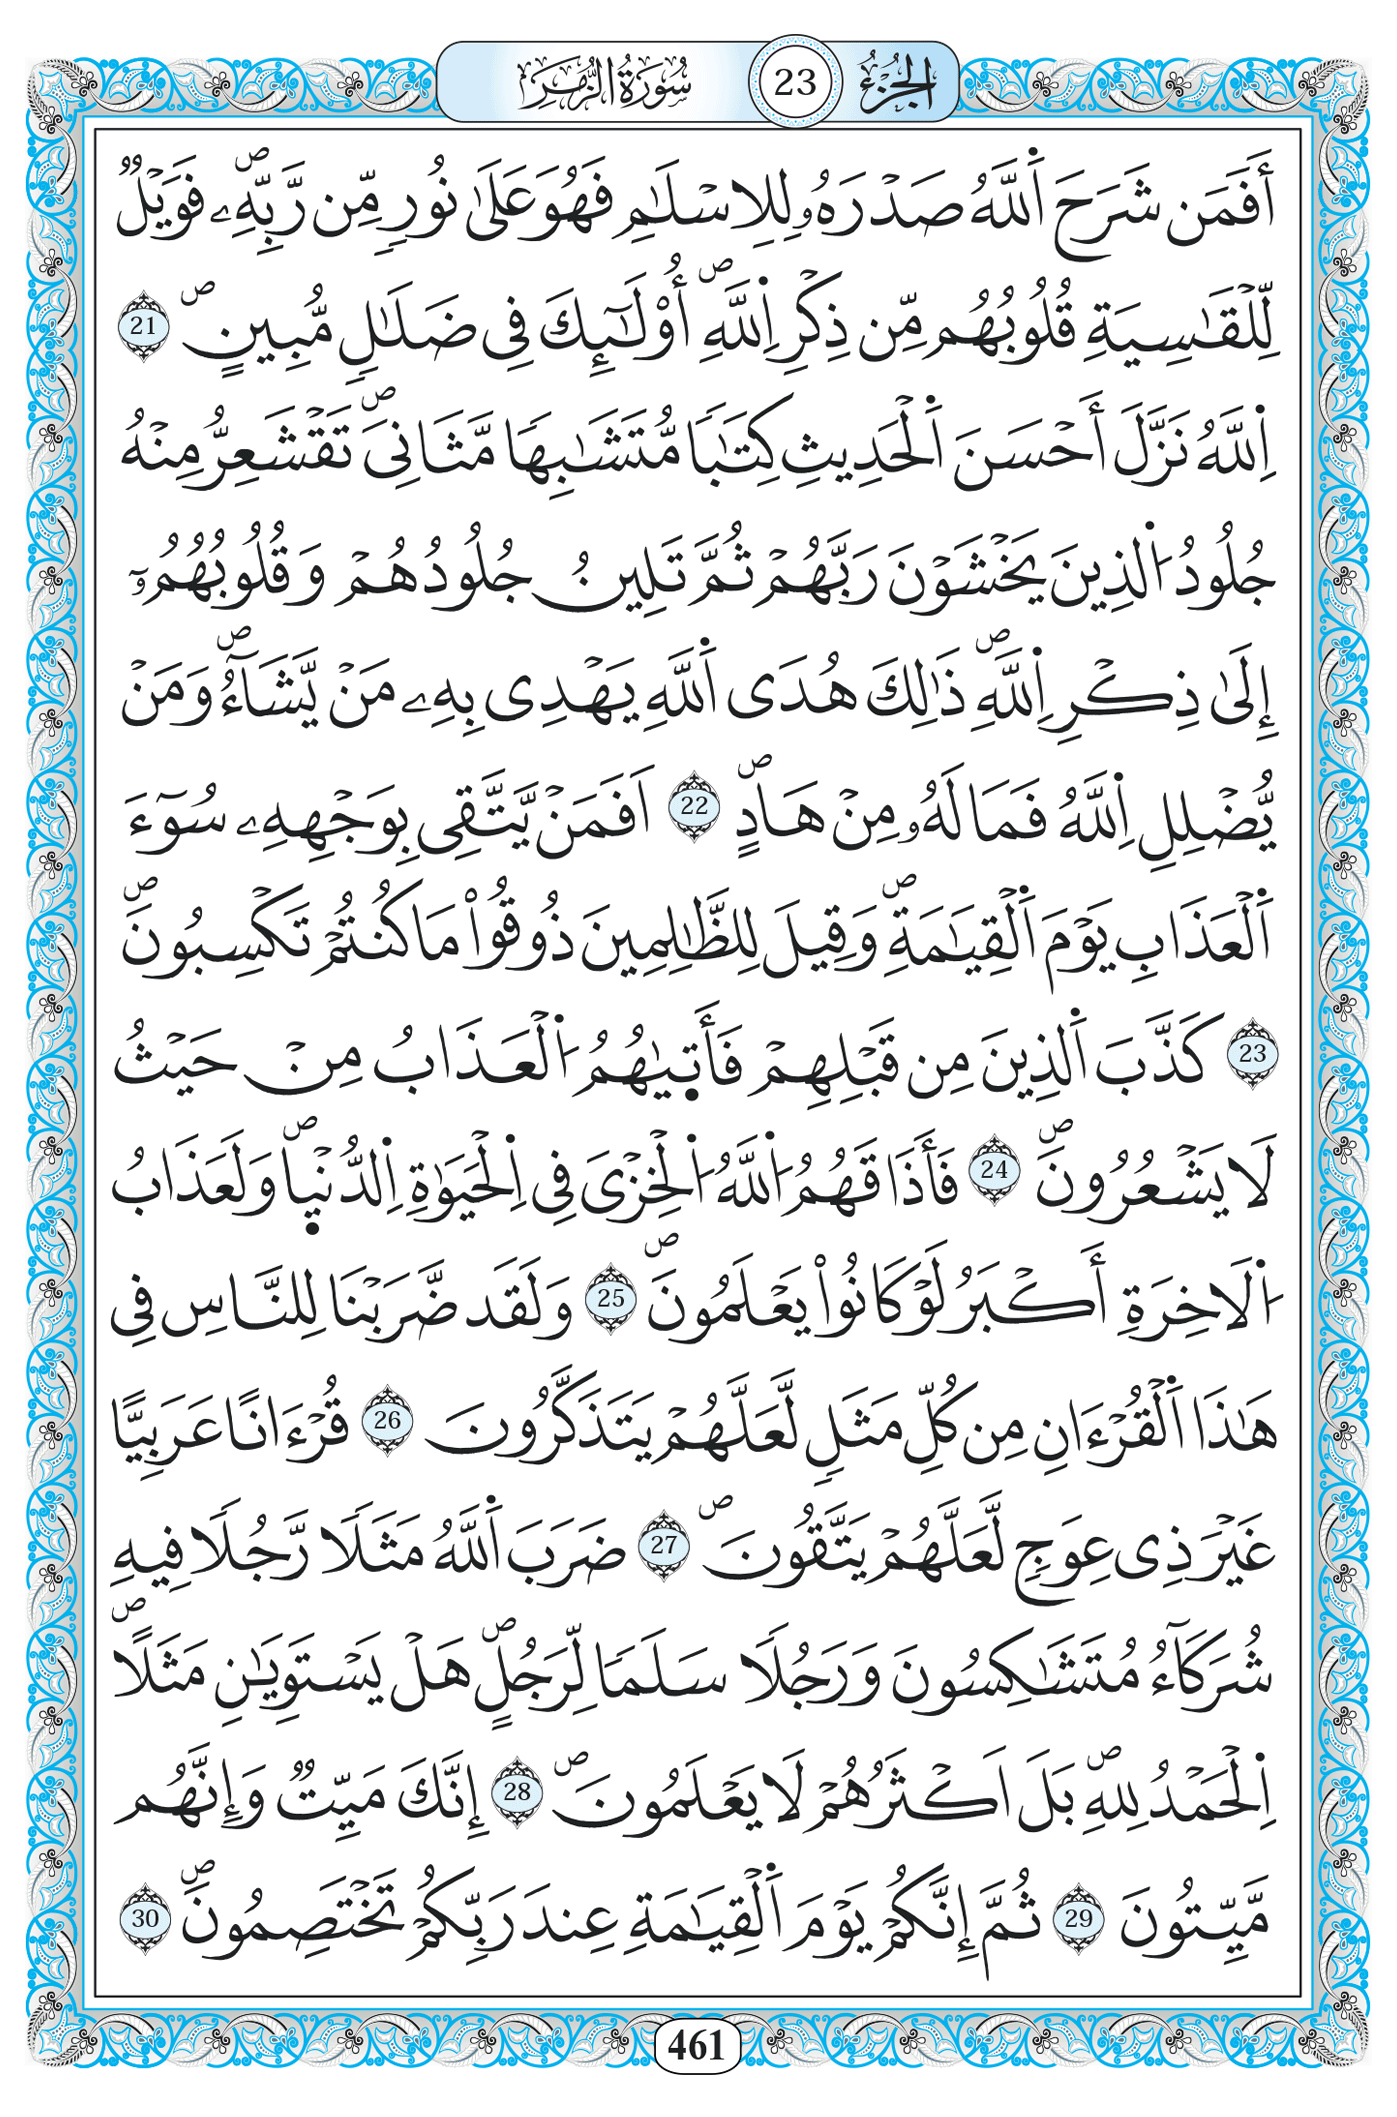 الجزء 23 سورة الزمر
أَفَمَن شَرَحَ اَ۬للَّهُ صَدْرَهُۥ لِلِاسْلَٰمِ فَهُوَ عَلَىٰ نُورٖ مِّن رَّبِّهِۦۖ فَوَيْلٞ
لِّلْقَٰسِيَةِ قُلُوبُهُم مِّن ذِكْرِ اِ۬للَّهِۖ أُوْلَٰٓئِكَ فِى ضَلَٰلٖ مُّبِينٍۖ 21
اِ۬للَّهُ نَزَّلَ أَحْسَنَ اَ۬لْحَدِيثِ كِتَٰبٗا مُّتَشَٰبِهٗا مَّثَانِىَۖ تَقْشَعِرُّ مِنْهُ
جُلُودُ اُ۬لذِينَ يَخْشَوْنَ رَبَّهُمْ ثُمَّ تَلِينُ جُلُودُهُمْ وَقُلُوبُهُمُۥٓ
إِلَىٰ ذِكْرِ اِ۬للَّهِۖ ذَٰلِكَ هُدَى اَ۬للَّهِ يَهْدِى بِهِۦ مَنْ يَّشَآءُۖ وَمَنْ
يُّضْلِلِ اِ۬للَّهُ فَمَا لَهُۥ مِنْ هَادٍۖ 22 اَفَمَنْ يَّتَّقِى بِوَجْهِهِۦ سُوٓءَ
اَ۬لْعَذَابِ يَوْمَ اَ۬لْقِيَٰمَةِۖ وَقِيلَ لِلظَّٰلِمِينَ ذُوقُواْ مَا كُنتُمْ تَكْسِبُونَۖ
23 كَذَّبَ اَ۬لذِينَ مِن قَبْلِهِمْ فَأَت۪يٰهُمُ اُ۬لْعَذَابُ مِنْ حَيْثُ
لَا يَشْعُرُونَۖ 24 فَأَذَاقَهُمُ اُ۬للَّهُ اُ۬لْخِزْىَ فِى اِ۬لْحَيَوٰةِ اِ۬لدُّنْي۪اۖ وَلَعَذَابُ
اُ۬لَاخِرَةِ أَكْبَرُ لَوْ كَانُواْ يَعْلَمُونَۖ 25 وَلَقَد ضَّرَبْنَا لِلنَّاسِ فِى
هَٰذَا اَ۬لْقُرْءَانِ مِن كُلِّ مَثَلٖ لَّعَلَّهُمْ يَتَذَكَّرُونَ 26 قُرْءَانًا عَرَبِيًّا
غَيْرَ ذِى عِوَجٖ لَّعَلَّهُمْ يَتَّقُونَۖ 27 ضَرَبَ اَ۬للَّهُ مَثَلٗا رَّجُلٗا فِيهِ
شُرَكَآءُ مُتَشَٰكِسُونَ وَرَجُلٗا سَلَمٗا لِّرَجُلٍۖ هَلْ يَسْتَوِيَٰنِ مَثَلًاۖ
اِ۬لْحَمْدُ لِلهِۖ بَلَ اَكْثَرُهُمْ لَا يَعْلَمُونَۖ 28 إِنَّكَ مَيِّتٞ وَإِنَّهُم
مَّيِّتُونَ 29 ثُمَّ إِنَّكُمْ يَوْمَ اَ۬لْقِيَٰمَةِ عِندَ رَبِّكُمْ تَخْتَصِمُونَۖ 30
461